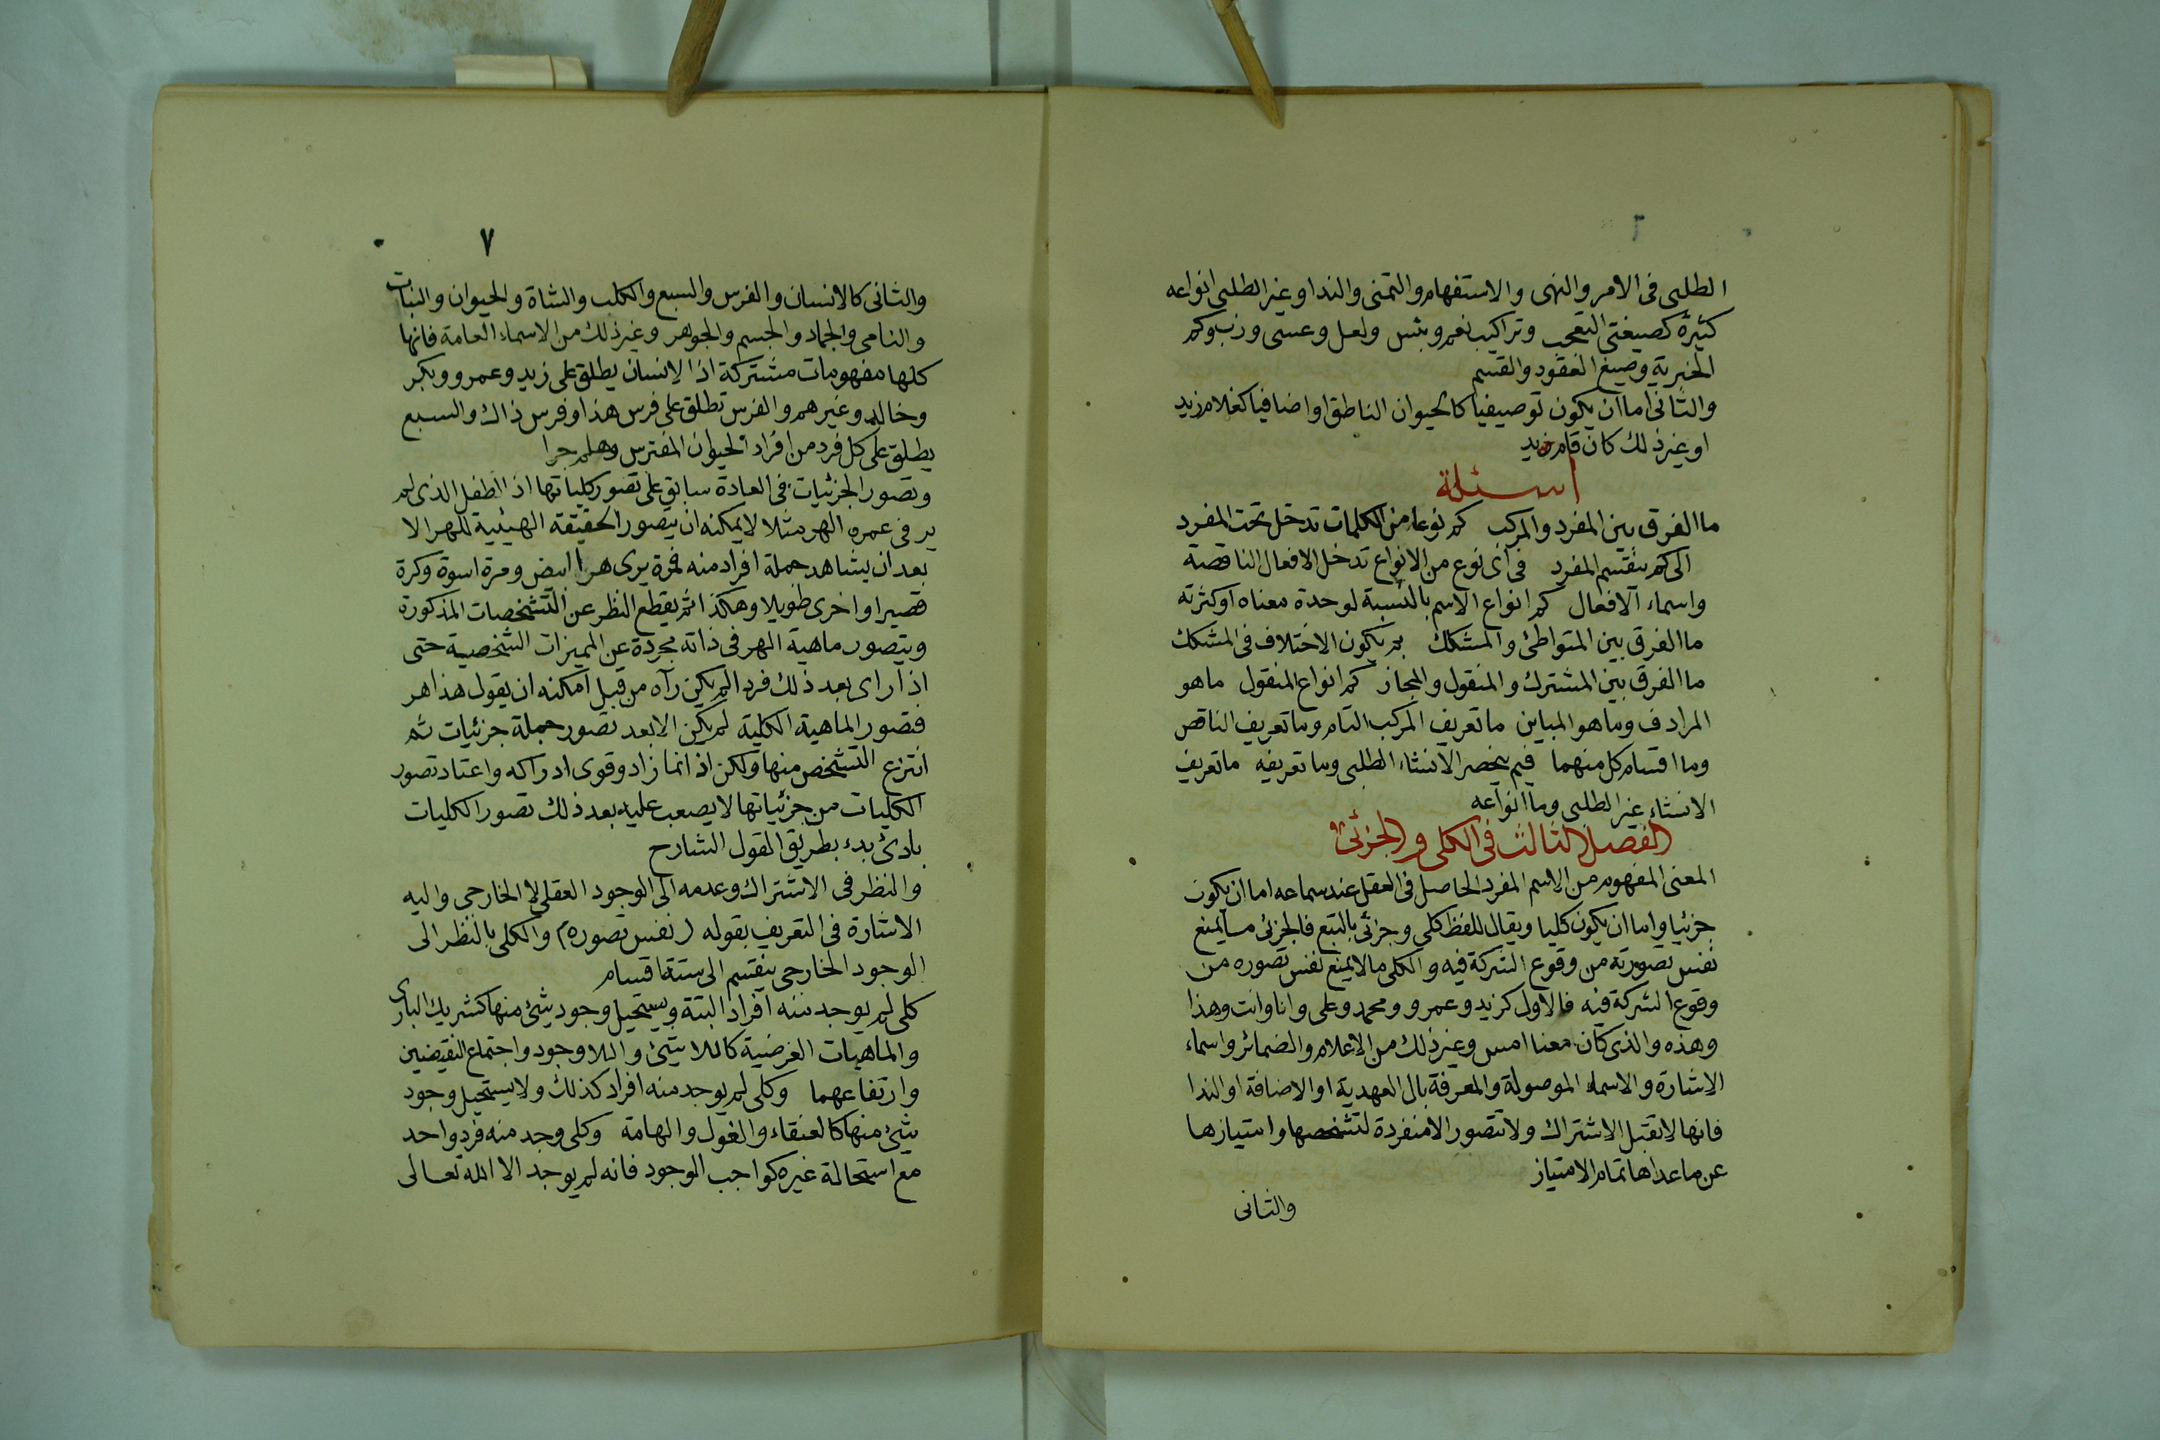 ٦
الطلبى فى الامر والنهى والاستفهام والتمنى والندا وغير الطلبى انواعه
كثيرة كصيغتى التعجب وتراكيب نعم وبئس ولعل وعسى ورب وكم
الخبرية وصيغ العقود والقسم
والثانى اما ان يكون توصيفيا كالحيوان الناطق او اضافيا كغلام زيد
او غير ذلك كان قام زيد
اسئلة
ما الفرق بين المفرد والمركب كم نوعا من الكلمات تدخل تحت المفرد
الى كم ينقسم المفرد فى اى نوع من الانواع تدخل الافعال الناقصة
واسماء الافعال كم انواع الاسم بالنسبة لوحدة معناه او كثرته
ما الفرق بين المتواطئ والمشكك بم يكون الاختلاف فى المشكك
ما الفرق بين المشترك والمنقول والمجاز كم انواع المنقول ما هو
المرادف وما هو المباين ما تعريف المركب التام وما تعريف الناقص
وما اقسام كل منهما فيم ينحصر الانشاء الطلبى وما تعريفه ما تعريف
الانشاء غير الطلبى وما انواعه
الفصل الثالث فى الكلى والجزئى
المعنى المفهوم من الاسم المفرد الحاصل فى العقل عند سماعه اما ان يكون
جزئيا واما ان يكون كليا ويقال للفظ كلى وجزئى بالتبع فالجزئى ما يمنع
نفس تصوره من وقوع الشركة فيه والكلى ما لا يمنع نفس تصوره من
وقوع الشركة فيه فالاول كزيد وعمرو ومحمد وعلى وانا وانت وهذا
وهذه والذى كان معنا امس وغير ذلك من الاعلام والضمائر واسماء
الاشارة والاسماء الموصولة والمعرفة بال العهدية او الاضافة او الندا
فانها لا تقبل الاشتراك ولا تتصور الا منفردة لتشخصها وامتيازها
عن ما عداها تمام الامتياز
والثانى
٧
والثانى كالانسان والفرس والسبع والكلب والشاة والحيوان والنبات
والنامى والجماد والجسم والجوهر وغير ذلك من الاسماء العامة فانها
كلها مفهومات مشتركة اذ الانسان يطلق على زيد وعمرو وبكر
وخالد وغيرهم والفرس تطلق على فرس هذا وفرس ذاك والسبع
يطلق على كل فرد من افراد الحيوان المفترس وهلم جرا
وتصور الجزئيات فى العادة سابق على تصور كلياتها اذ الطفل الذى لم
ير فى عمره الهر مثلا لا يمكنه ان يتصور الحقيقة الهيئية للهر الا
بعد ان يشاهد جملة افراد منه فمرة يرى هرا ابيض ومرة اسود وكرة
قصيرا واخرى طويلا وهكذا ثم يقطع النظر عن التشخصات المذكورة
ويتصور ماهية الهر فى ذاته مجردة عن المميزات الشخصية حتى
اذا راى بعد ذلك فردا لم يكن رآه من قبل امكنه ان يقول هذا هر
فتصور الماهية الكلية لم يكن الا بعد تصور جملة جزئيات ثم
انتزع التشخص منها ولكن اذا نما زاد وقوى ادراكه واعتاد تصور
الكليات من جزئياتها لا يصعب عليه بعد ذلك تصور الكليات
بادئ بدء بطريق القول الشارح
والنظر فى الاشتراك وعدمه الى الوجود العقلى لا الخارجى واليه
الاشارة فى التعريف بقوله (نفس تصوره) والكلى بالنظر الى
الوجود الخارجى ينقسم الى ستة اقسام
كلى لم يوجد منه افراد البتة ويستحيل وجود شئ منها كشريك البارى
والماهيات الفرضية كاللا شئ واللا وجود واجتماع النقيضين
وارتفاعهما وكلى لم يوجد منه افراد كذلك ولا يستحيل وجود
شئ منها كالعنقاء والغول والهامة وكلى وجد منه فرد واحد
مع استحالة غيره كواجب الوجود فانه لم يوجد الا الله تعالى